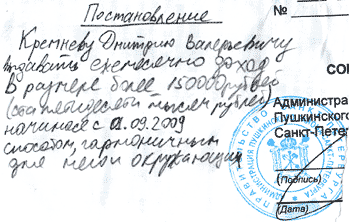 Постановление
Кремневу Дмитрию Валерьевичу
выдавать ежемесячно доход
в размере более 150000 рублей
(сто пятьдесят тысяч рублей)
начиная с 01.09.2009
способом, гармоничным
для меня окружающих
№
СО
Администра
Пушкинского
Санкт-Петер
(Подпись)
(Дата)